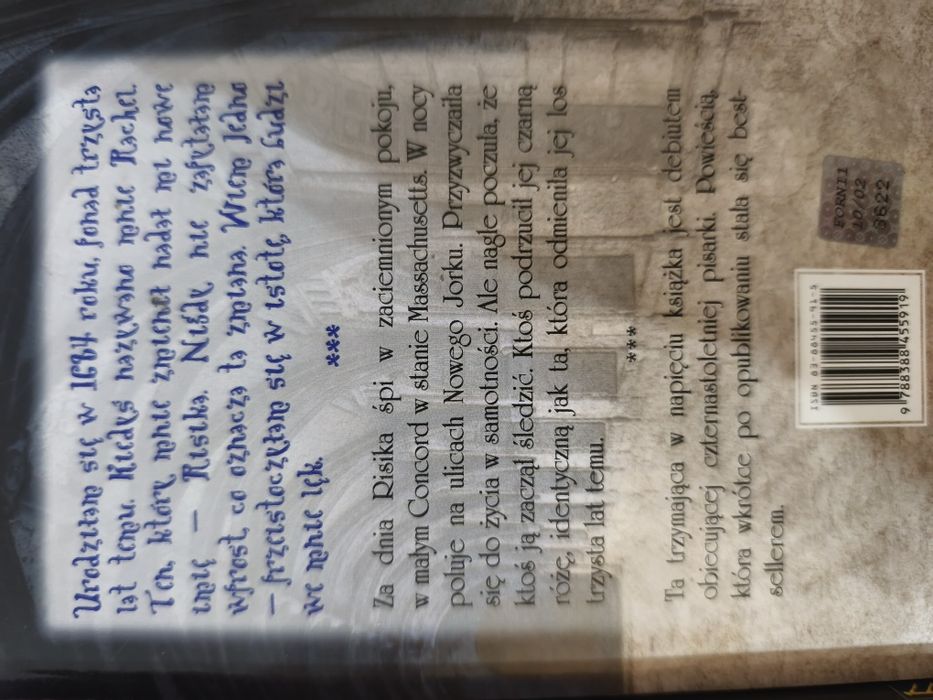 Urodziłam się w 1684 roku, ponad trzysta
lat temu. Kiedyś nazywano mnie Rachel.
Ten, który mnie zmienił nadał mi nowe
imię – Risika. Nigdy nie zapytałam
wprost, co oznacza ta zmiana. Wiem jedno
– przeistoczyłam się w istotę, która budzi
we mnie lęk.
***
Za dnia Risika śpi w zaciemnionym pokoju,
w małym Concord w stanie Massachusetts. W nocy
poluje na ulicach Nowego Jorku. Przyzwyczaiła
się do życia w samotności. Ale nagle poczuła, że
ktoś ją zaczął śledzić. Ktoś podrzucił jej czarną
różę, identyczną jak ta, która odmieniła jej los
trzysta lat temu.
***
Ta trzymająca w napięciu książka jest debiutem
obiecującej czternastoletniej pisarki. Powieścią,
która wkrótce po opublikowaniu stała się best-
sellerem.
ISBN 83-88455-91-5
9 788388 455919
10/02
8622